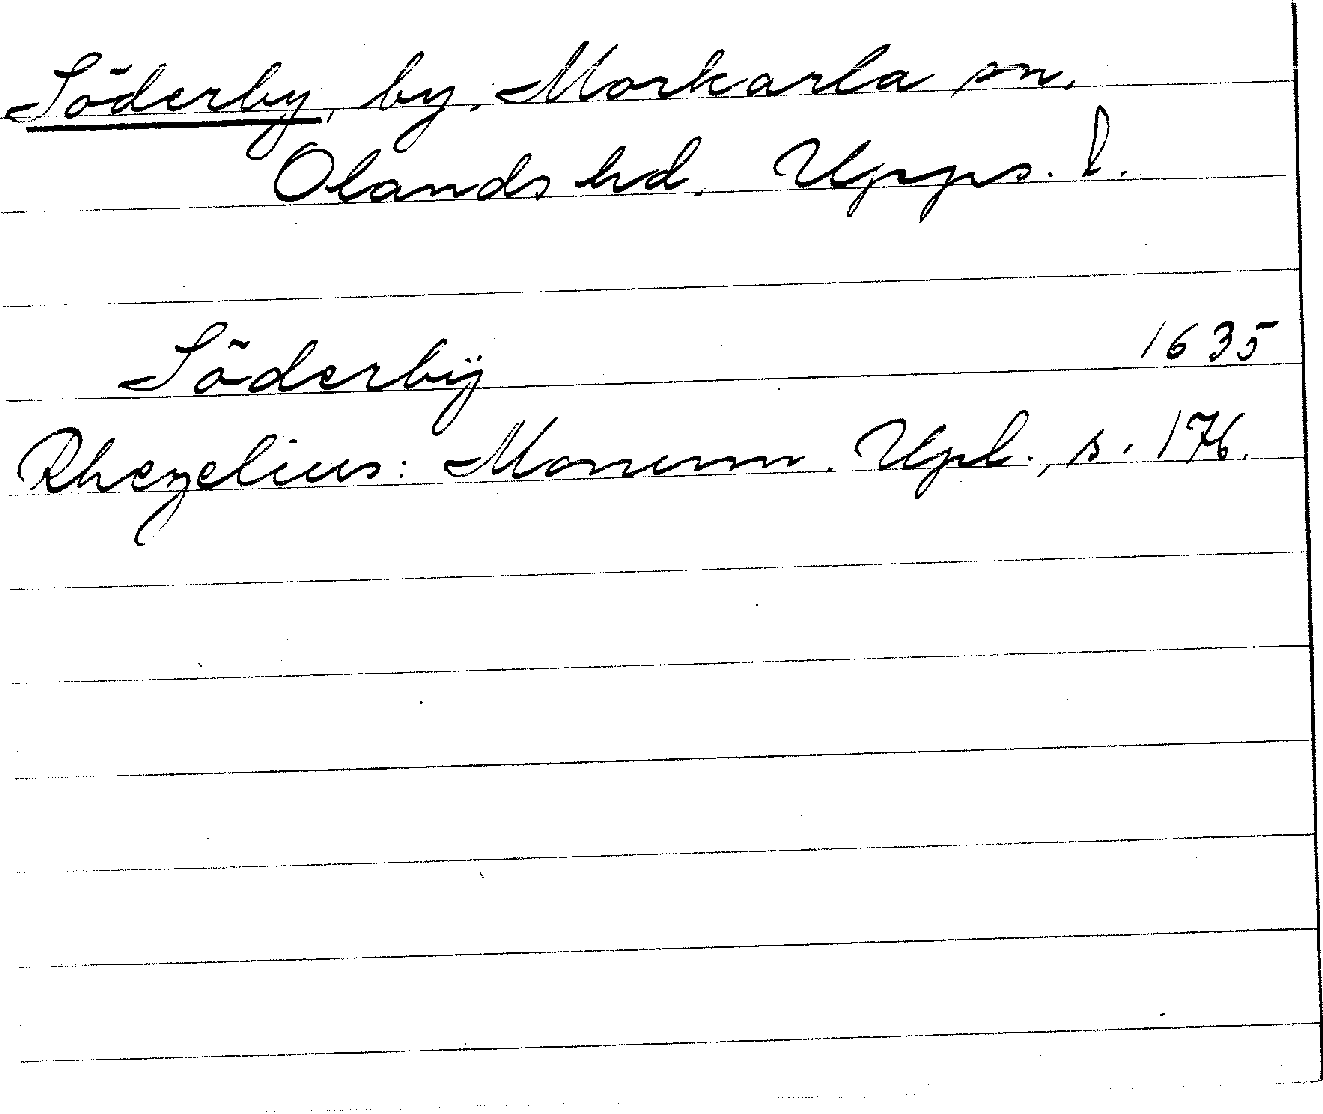 Söderby, by. Morkarla sn.
Olands hd. Upps. l.
Söderbÿ 1635
Rhezelius: Monum. Upl., s. 176.